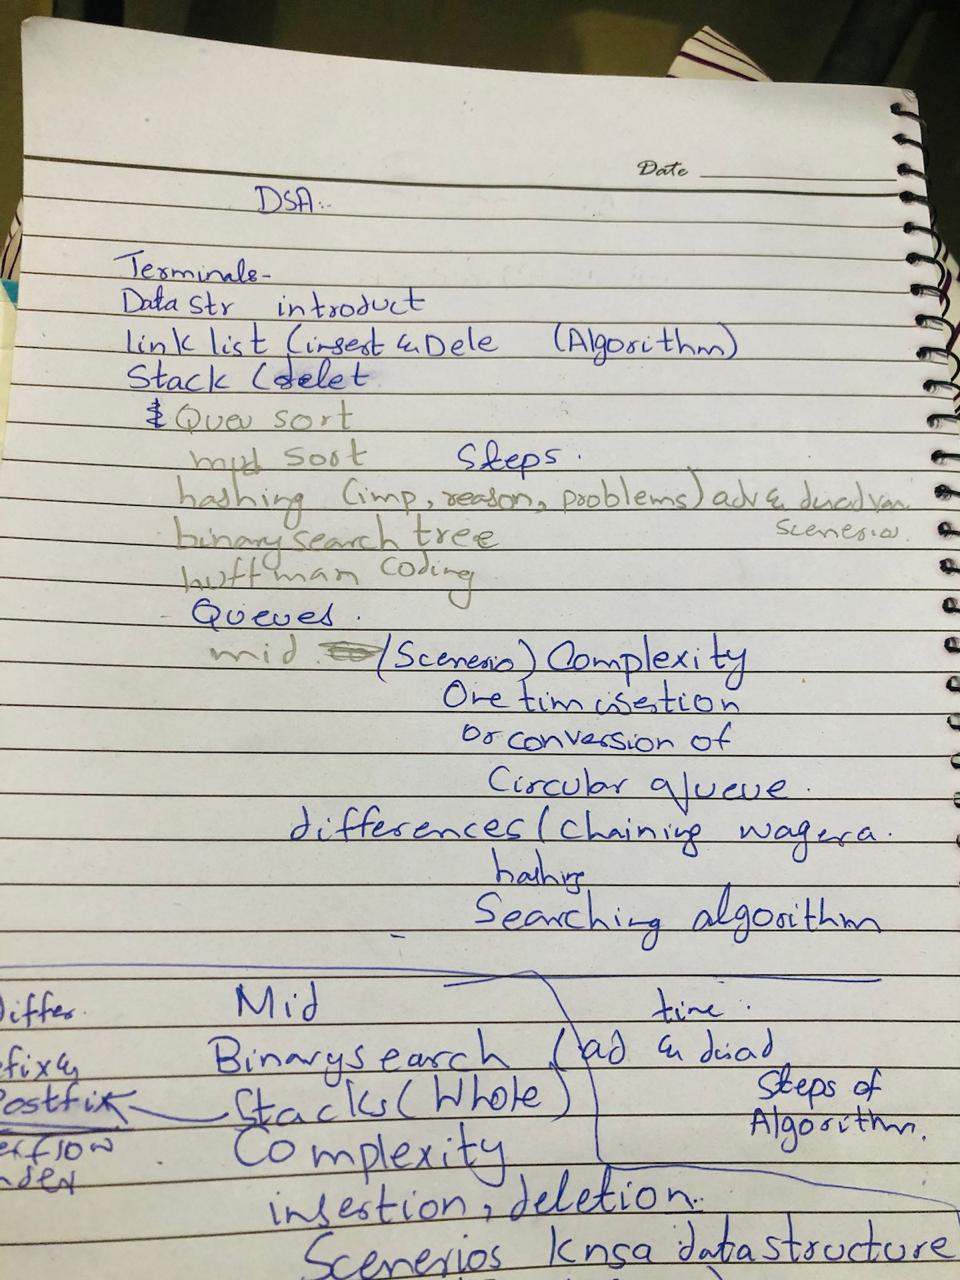 Date
DSA:-
Terminals-
Data Str introduct
Link list (insert & Dele (Algorithm)
Stack (delet
Queu sort
sort Steps.
hashing (imp, reason, problems) adv & disadvan
binary search tree scenerio.
huffman coding
Queues.
mid (Scenerio) Complexity
One tim insertion
or conversion of
Circular queue.
differences (chaining wagera.
hashing
Searching algorithm
Differ. Mid time.
efix & Binary search (ad & disad
Postfix Stacks (Whole) Steps of
Algorithm.
erflow Complexity
ndex
insertion, deletion.
Scenerios knsa data structure